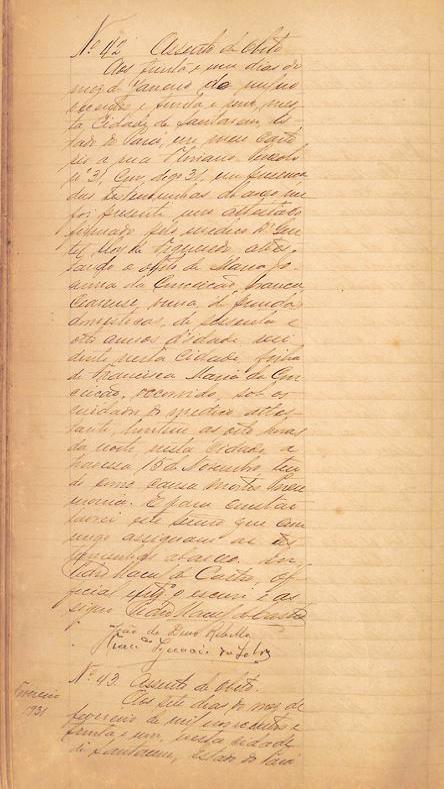 Nº 42 Assento de Obito
Aos trinta e um dias do
mez de Janeiro de mil no
vecentos e trinta e um, nes
ta Cidade de Santarem, Es
tado do Pará, em meu carto
rio a rua Floriano Peixoto
nº 31, em presença
das testemunhas abaixo me
foi presente um attestado
firmado pelo medico Dr.
de Figueredo attes
tando o obito de Maria Jo
quina da Conceição, branca
Cearense, viuva de prendas
domesticas, de sessenta e
oito annos d'idade resi
dente nesta Cidade, filha
de Francisca Maria da Con
ceição, occorrido, sob os
cuidados do medico attes
tante, hontem as oito horas
da noite nesta Cidade a
travessa 15 de Novembro, ten
do como causa mortis Pneu
monia. E para constar
lavrei este termo que com
migo assignam as tes
temunhas abaixo. Eu
Maciel da Costa, Of
ficial o escrevi e as
signo Maciel da Costa
João de Deus
Ignacio da
Nº 43. Assento de Obito.
Fevereiro
1931
Aos sete dias do mez de
fevereiro de mil novecentos e
trinta e um, nesta cidade
de Santarem, Estado do Pará